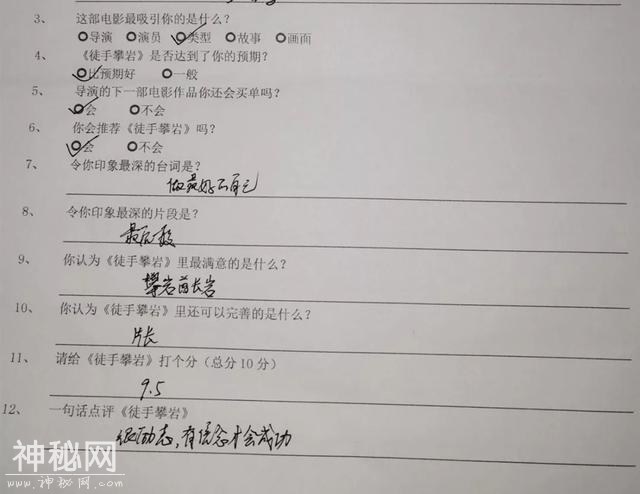 3、 这部电影最吸引你的是什么？
导演 演员 类型 故事 画面
4、 《徒手攀岩》是否达到了你的预期？
比预期好 一般
5、 导演的下一部电影作品你还会买单吗？
会 不会
6、 你会推荐《徒手攀岩》吗？
会 不会
7、 令你印象最深的台词是？
做最好的自己
8、 令你印象最深的片段是？
最后段
9、 你认为《徒手攀岩》里最满意的是什么？
攀岩酋长岩
10、 你认为《徒手攀岩》里还可以完善的是什么？
片长
11、 请给《徒手攀岩》打个分（总分10分）
9.5
12、 一句话点评《徒手攀岩》
很励志，有信念才会成功
神秘网
www.神秘网.com